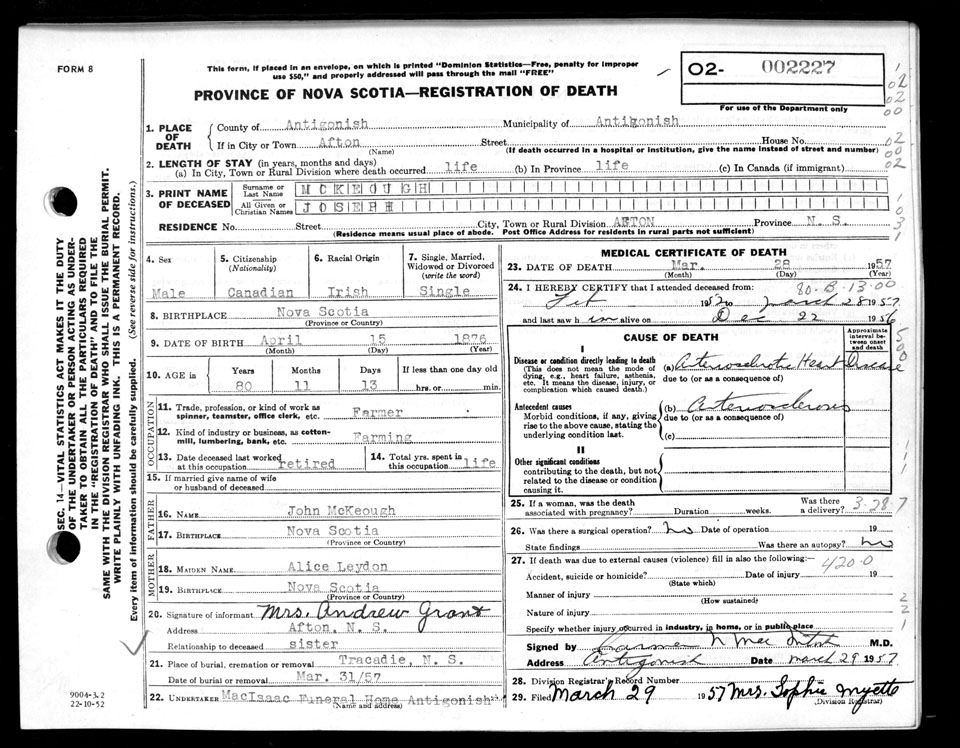 FORM 8
This form, if placed in an envelope, on which is printed "Dominion Statistics—Free, penalty for improper
use $50," and properly addressed will pass through the mail "FREE"
PROVINCE OF NOVA SCOTIA—REGISTRATION OF DEATH
O2- 002227
For use of the Department only
1. PLACE OF DEATH
County of Antigonish Municipality of Antigonish
If in City or Town Afton Street House No.
(Name) (If death occurred in a hospital or institution, give the name instead of street and number)
2. LENGTH OF STAY (in years, months and days)
(a) In City, Town or Rural Division where death occurred life (b) In Province life (c) In Canada (if immigrant)
3. PRINT NAME OF DECEASED
Surname or Last Name MCKEOUGH
All Given or Christian Names JOSEPH
RESIDENCE No. Street City, Town or Rural Division AFTON Province N. S.
(Residence means usual place of abode. Post Office Address for residents in rural parts not sufficient)
4. Sex
Male
5. Citizenship (Nationality)
Canadian
6. Racial Origin
Irish
7. Single, Married, Widowed or Divorced (write the word)
Single
8. BIRTHPLACE Nova Scotia
(Province or Country)
9. DATE OF BIRTH April 15 1876
(Month) (Day) (Year)
10. AGE in Years Months Days If less than one day old
80 11 13 hrs. or min.
OCCUPATION
11. Trade, profession, or kind of work as spinner, teamster, office clerk, etc. Farmer
12. Kind of industry or business, as cotton-mill, lumbering, bank, etc. Farming
13. Date deceased last worked at this occupation retired
14. Total yrs. spent in this occupation life
15. If married give name of wife or husband of deceased
FATHER
16. NAME John McKeough
17. BIRTHPLACE Nova Scotia
(Province or Country)
MOTHER
18. MAIDEN NAME Alice Leydon
19. BIRTHPLACE Nova Scotia
(Province or Country)
20. Signature of informant Mrs. Andrew Grant
Address Afton, N. S.
Relationship to deceased sister
21. Place of burial, cremation or removal Tracadie, N. S.
Date of burial or removal Mar. 31/57
22. UNDERTAKER MacIsaac Funeral Home Antigonish
(Name and address)
MEDICAL CERTIFICATE OF DEATH
23. DATE OF DEATH Mar. 28 1957
(Month) (Day) (Year)
24. I HEREBY CERTIFY that I attended deceased from: 80.B.13.00
Feb 1952 to March 28 1957
and last saw him alive on Dec 22 1956
CAUSE OF DEATH
Approximate interval between onset and death
I
Disease or condition directly leading to death
(This does not mean the mode of dying, e.g., heart failure, asthenia, etc. It means the disease, injury, or complication which caused death.)
(a) Arteriosclerotic Heart Disease
due to (or as a consequence of)
Antecedent causes
Morbid conditions, if any, giving rise to the above cause, stating the underlying condition last.
(b) Arteriosclerosis
due to (or as a consequence of)
(c)
II
Other significant conditions
contributing to the death, but not related to the disease or condition causing it.
25. If a woman, was the death associated with pregnancy? Duration weeks. Was there a delivery? 3-28-7
26. Was there a surgical operation? No Date of operation 19
State findings Was there an autopsy? No
27. If death was due to external causes (violence) fill in also the following:— 420.0
Accident, suicide or homicide? Date of injury 19
(State which)
Manner of injury
(How sustained)
Nature of injury
Specify whether injury occurred in industry, in home, or in public place
Signed by M.D.
Address Antigonish Date March 29 1957
28. Division Registrar's Record Number
29. Filed March 29 1957 Mrs. Sophie Myette
(Division Registrar)
SEC. 14—VITAL STATISTICS ACT MAKES IT THE DUTY
OF THE UNDERTAKER OR PERSON ACTING AS UNDER-
TAKER TO OBTAIN ALL THE PARTICULARS REQUIRED
IN THE "REGISTRATION OF DEATH" AND TO FILE THE
SAME WITH THE DIVISION REGISTRAR WHO SHALL ISSUE THE BURIAL PERMIT.
WRITE PLAINLY WITH UNFADING INK. THIS IS A PERMANENT RECORD.
Every item of information should be carefully supplied. (See reverse side for instructions.)
9004-3.2
22-10-52